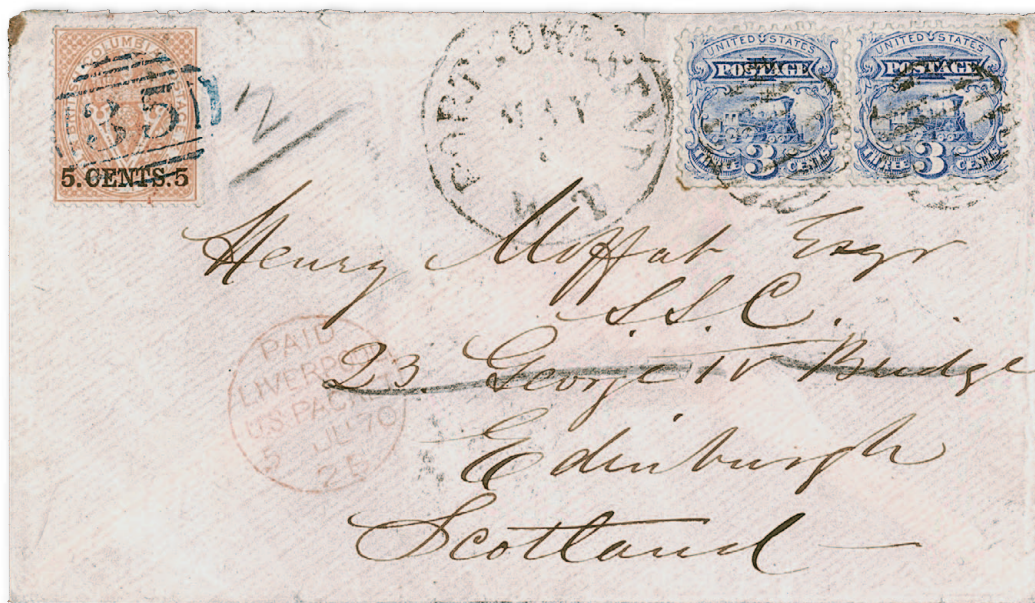 BRITISH COLUMBIA POSTAGE
35
5.CENTS.5
2/
PORT TOWNSEND
MAY
W.T.
UNITED STATES
POSTAGE
THREE 3 CENTS
UNITED STATES
POSTAGE
THREE 3 CENTS
Henry Moffat Esqr
S.S.C.
23. George IV Bridge
Edinburgh
Scotland
PAID
LIVERPOOL
U.S.PACKET
5 JU 70
25